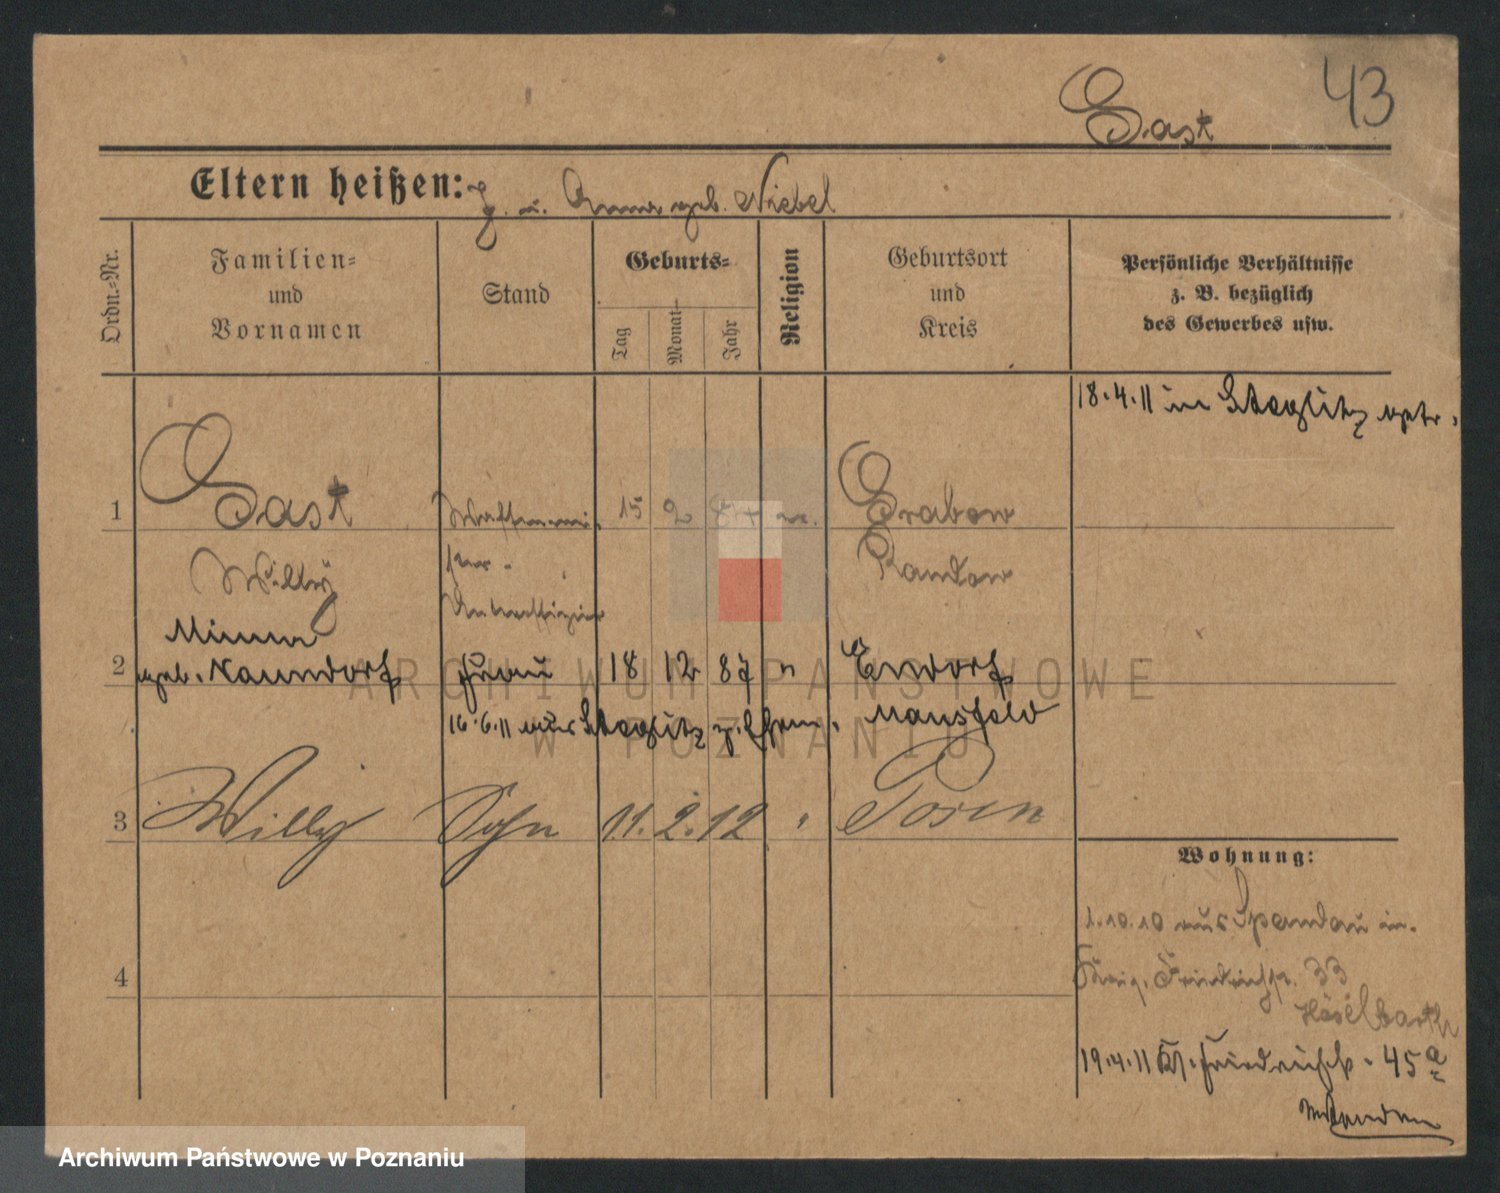 43
Gast
Eltern heißen: J. u. Anna geb. Niebel
Ordn.-Nr.
Familien-
und
Vornamen
Stand
Geburts-
Tag
Monat
Jahr
Religion
Geburtsort
und
Kreis
Persönliche Verhältnisse
z. B. bezüglich
des Gewerbes usw.
18.4.11 in Steglitz getr.
1 Gast 15 2 84 Grabow
Willy Randow
Unteroffizier
Minna
2 geb. Naundorf Frau 18 12 87 " Endorf
16.6.11 aus Steglitz z. Ehem. Mansfeld
3 Willy Sohn 11. 2. 12 " Posen
Wohnung:
1.10.10 aus Spandau in
4
Friedrichstr. 33
Häselbarth
19.4.11 Kl. Friedrichstr. 45a
ARCHIWUM PAŃSTWOWE
W POZNANIU
Archiwum Państwowe w Poznaniu